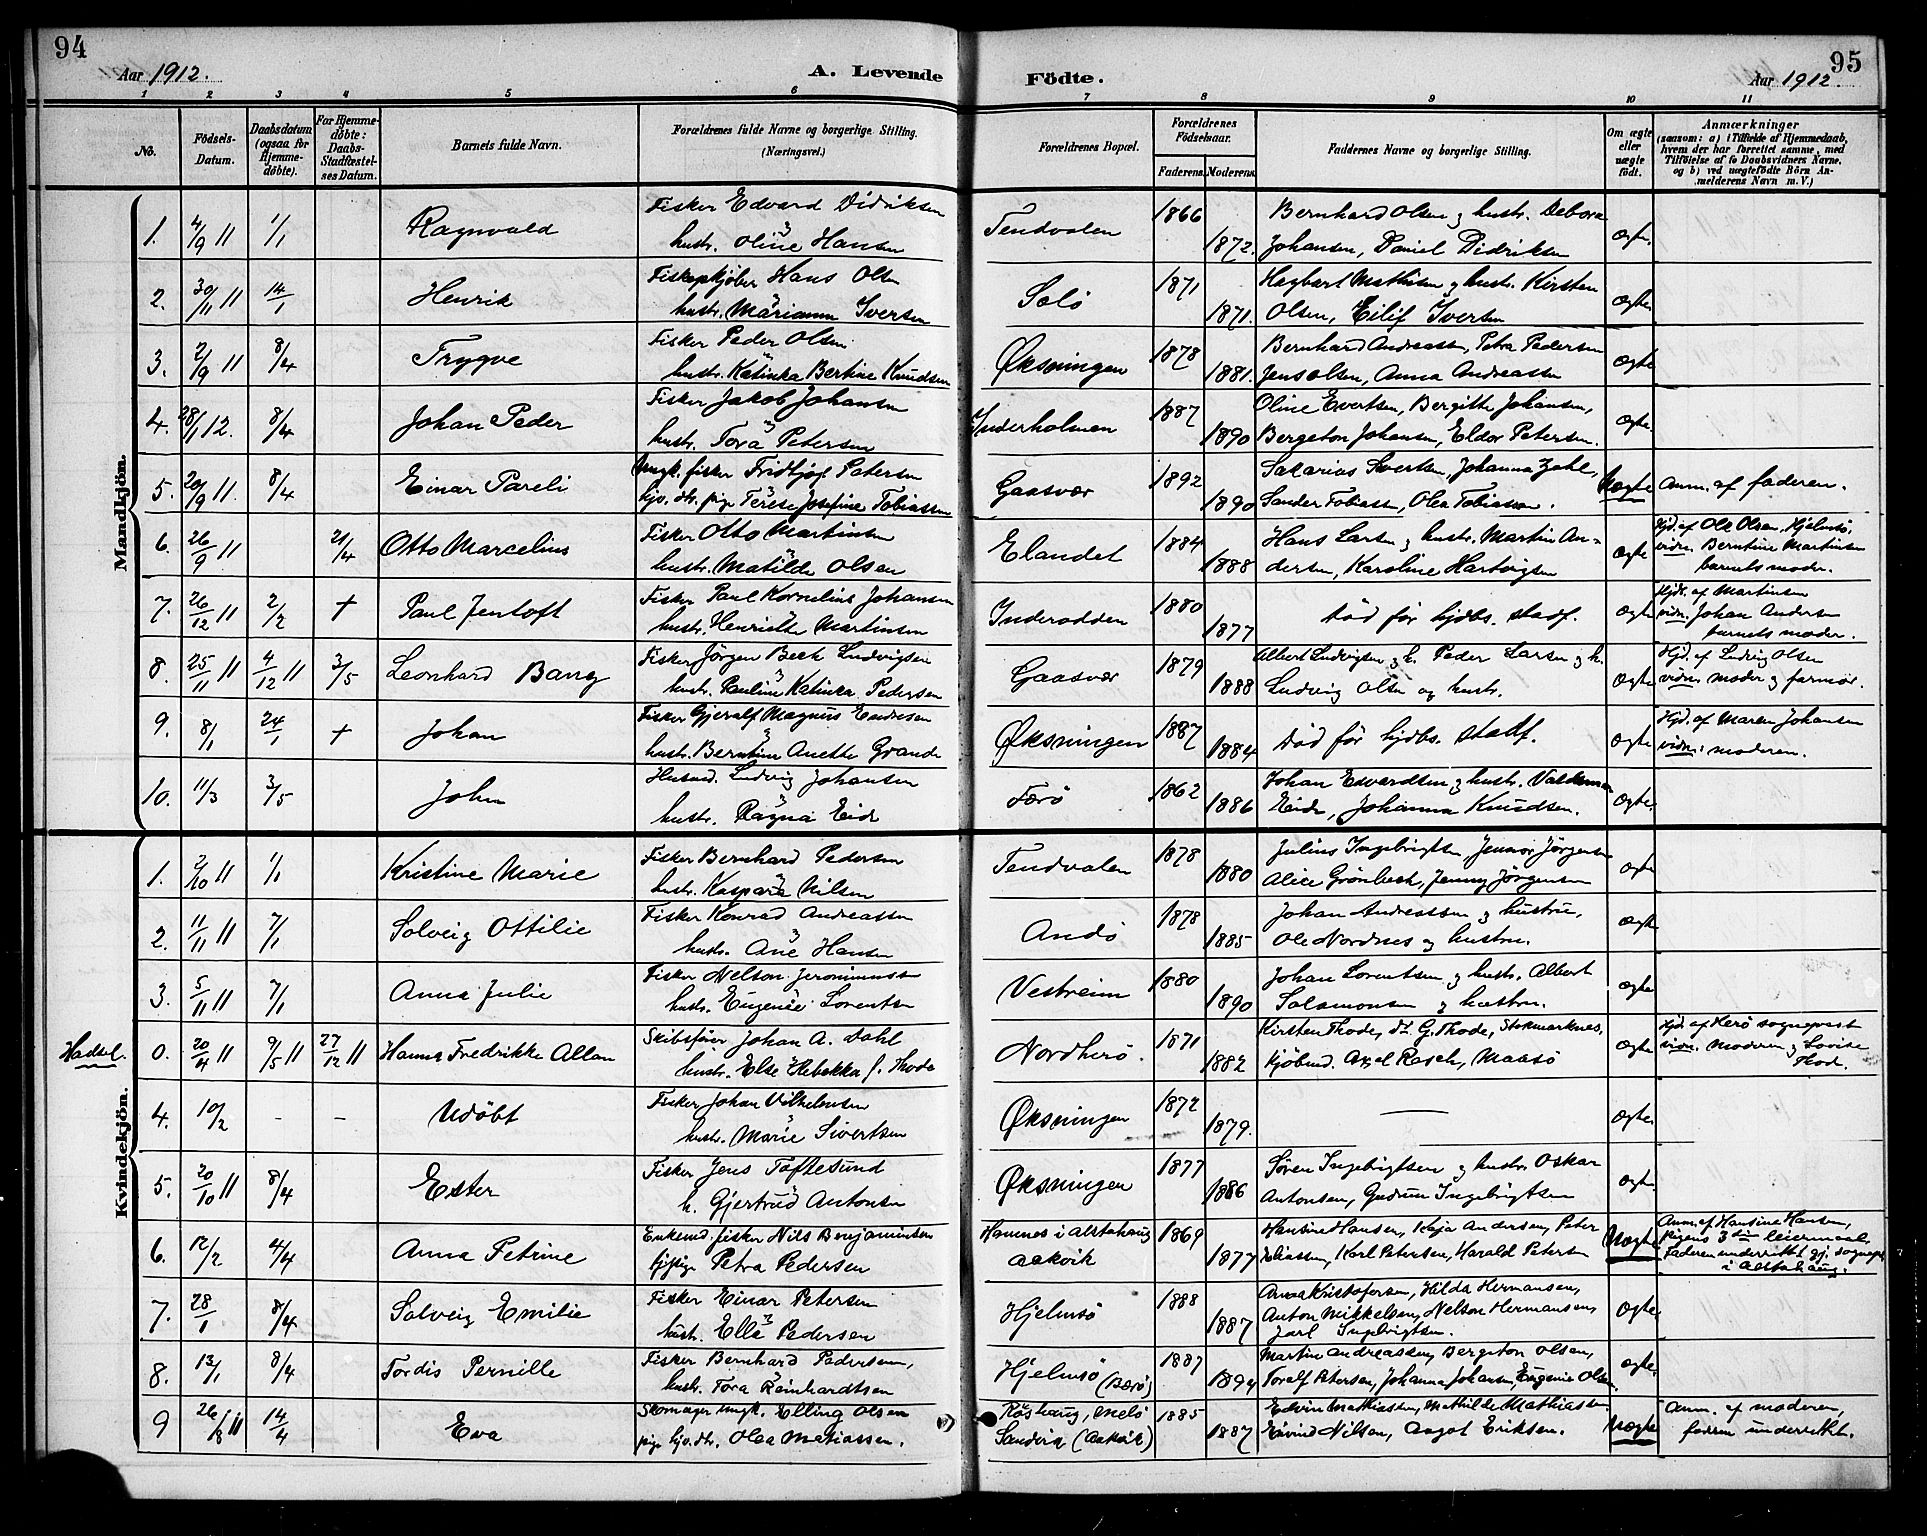 94
Aar 1912.
A. Levende
Födte.
95
Aar 1912.
1 2 3 4 5 6 7 8 9 10 11
No.
Födsels-Datum.
Daabsdatum (ogsaa for Hjemmedöbte).
For Hjemmedöbte: Daabs-Stadfæstelses Datum.
Barnets fulde Navn.
Forældrenes fulde Navne og borgerlige Stilling. (Næringsvei.)
Forældrenes Bopæl.
Forældrenes Födselsaar.
Faderens. Moderens.
Faddernes Navne og borgerlige Stilling.
Om ægte eller uægte födt.
Anmærkninger
(saasom: a) i Tilfælde af Hjemmedaab, hvem der har forrettet samme, med Tilföielse af to Daabsvidners Navne, og b) ved uægtefödte Börn Anmelderens Navn m. V.)
Mandkjön.
1. 4/9 11 1/1 Ragnvald Fisker Edvard Didriksen 1866 Bernhard Olsen og hustr. Debora
hustr. Oline Hansen Tendvalen 1872. Johansen, Daniel Didriksen ægte.
2. 30/11 11 14/1 Henrik Fiskeopkjøber Hans Olsen 1871 Hagbart Mathisen og hustr. Kirsten
hustr. Mariann Iversen Solö 1871. Olsen, Eilif Iversen ægte.
3. 2/9 11 8/4 Trygve Fisker Peder Olsen 1878 Bernhard Andreassen, Petra Pedersen
hustr. Katinka Bertine Knudsen Øksningen 1881. Jens Olsen, Anna Andreassen ægte
4. 28/1 12. 8/4 Johan Peder Fisker Jakob Johansen 1887 Oline Evertsen, Bergitte Johansen,
hustr. Tora Petersen Inderholmen 1890 Bergeton Johansen, Eldor Petersen. ægte.
5. 20/9 11. 8/4 Einar Pareli Ungk. fisker Fridtjof Petersen 1892 Sakarias Sivertsen, Johanna Zahl,
hjv. dtr. pige Terese Josefine Tobiassen Gaasvær 1890 Sander Tobiassen, Olea Tobiassen. Uægte Anm. af faderen.
6. 26/9 11 21/4 Otto Marcelius Fisker Otto Martinsen 1884 Hans Larsen og hustr. Martin An-
hustr. Matilde Olsen Elandet 1888 dersen, Karoline Hartvigsen ægte Hjd. af Ole Olsen, Hjelmsö,
vidn. Berntine Martinsen
barnets moder.
7. 26/12 11 2/2 + Paul Jentoft Fisker Paul Kornelius Johansen 1880
hustr. Henriette Martinsen Inderodden 1877 Död för hjdbs. stadf. ægte Hjd. af Martinsen
vidn. Johan Andersen
barnets moder.
8. 25/11 11 4/12 11 3/5 Leonhard Bang Fisker Jörgen Beck Ludvigsen 1879 Albert Ludvigsen og h. Peder Larsen og h.
hustr. Pauline Katinka Pedersen Gaasvær 1888 Ludvig Olsen og hustr. ægte Hjd. af Ludvig Olsen
vidn. moder og farmor.
9. 8/1 24/1 + Johan Fisker Gjeralf Magnus Endresen 1887
hustr. Berntine Anette Grande Øksningen 1884 Död för hjdbs. stadf. ægte Hjd. af Maren Johansen
vidn: moderen.
10. 11/3 3/5 John Husmd. Ludvig Johansen 1862 Johan Edvardsen og hustr. Valdemar
hustr. Ragna Eide Færö 1886 Eide, Johanna Knudsen. ægte.
Kvindekjön.
1. 2/10 11 1/1 Kristine Marie Fisker Bernhard Pedersen 1878 Julius Ingebrigtsen, Jörgensen
hustr. Kaspara Nilsen Tendvalen 1880 Alice Grönbech, Jenny Jörgensen ægte
2. 11/11 11 7/1 Solveig Ottilie Fisker Konrad Andreassen 1878 Johan Andreassen og hustru,
hustr. Ane Hansen Andö 1885 Ole Nordnes og hustru. ægte
3. 5/11 11 7/1 Anna Julie Fisker Nelson Jeronimussen 1880 Johan Lorentsen og hustr. Albert
hustr. Eugenie Lorentsen Vestreim 1890 Salamonsen og hustru. ægte
Hadsel.
0. 20/4 11 9/5 11 27/12 11 Hanna Fredrikke Allan Skibsförer Johan A. Dahl 1871 Kirsten Thode, G. Thode, Stokmarknes,
hustr. Else Rebekka f. Thode Nordherö. 1882 Kjöbmd. Axel Rasch, Maasö ægte Hjd. af Herö sogneprest
vidn. Moderen og Lovise
Thode.
4. 10/2 - - Udöbt Fisker Johan Vilhelmsen 1872
hustr. Marie Sivertsen Øksningen 1879. — ægte
5. 20/10 11 8/4 Ester Fisker Jens Toftesund 1877 Sören Ingebrigtsen og hustr. Oskar
h. Gjertrud Antonsen Øksningen 1886 Antonsen, Gudrun Ingebrigtsen ægte
6. 12/2 4/4 Anna Petrine Enkemd. fisker Nils Benjaminsen Hamnes i Alstahaug 1869 Hansine Hansen, Kaja Andersen, Peter
Petra Pedersen Aakvik 1877 Eliassen, Karl Petersen, Harald Petersen Uægte Anm. af Hansine Hansen,
Pigens 3die leiermaal,
Faderen underrettet gj. sognepr.
i Alstahaug.
7. 28/1 8/4 Solveig Emilie Fisker Einar Petersen 1888 Anna Kristofersen, Hilda Hermansen,
hustr. Ella Pedersen Hjelmsö 1887 Anton Mikkelsen, Nelson Hermansen,
Jarl Ingebrigtsen. ægte
8. 13/1 8/4 Tordis Pernille Fisker Bernhard Pedersen, 1887 Martin Andreassen, Bergeton Olsen,
hustr. Tora Reinhardtsen Hjelmsö (Bærö) 1894 Toralf Petersen, Johanna Johansen, Eugenie Olsen. ægte.
9 26/8 11 14/4 Eva Skomager ungk. Elling Olsen Röshaug, Melö 1885 Edvin Mathiassen, Mathilde Mathiassen
pige hjv. dtr. Olea Matiassen. Sandvik (Aakvik) 1887 Eivind Nilsen, Aagot Eriksen. Uægte Anm. af moderen,
fadren underrettet.